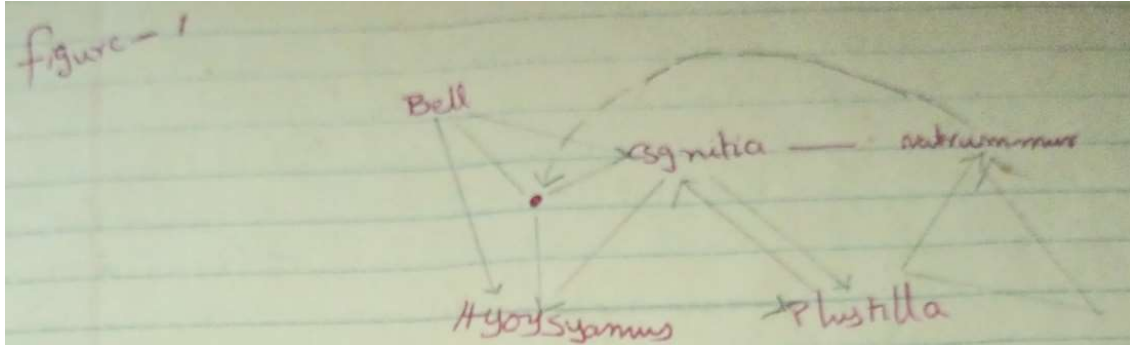 figure - 1
Bell
Ignitia — natrummur
Hyoysyamus
Plustilla